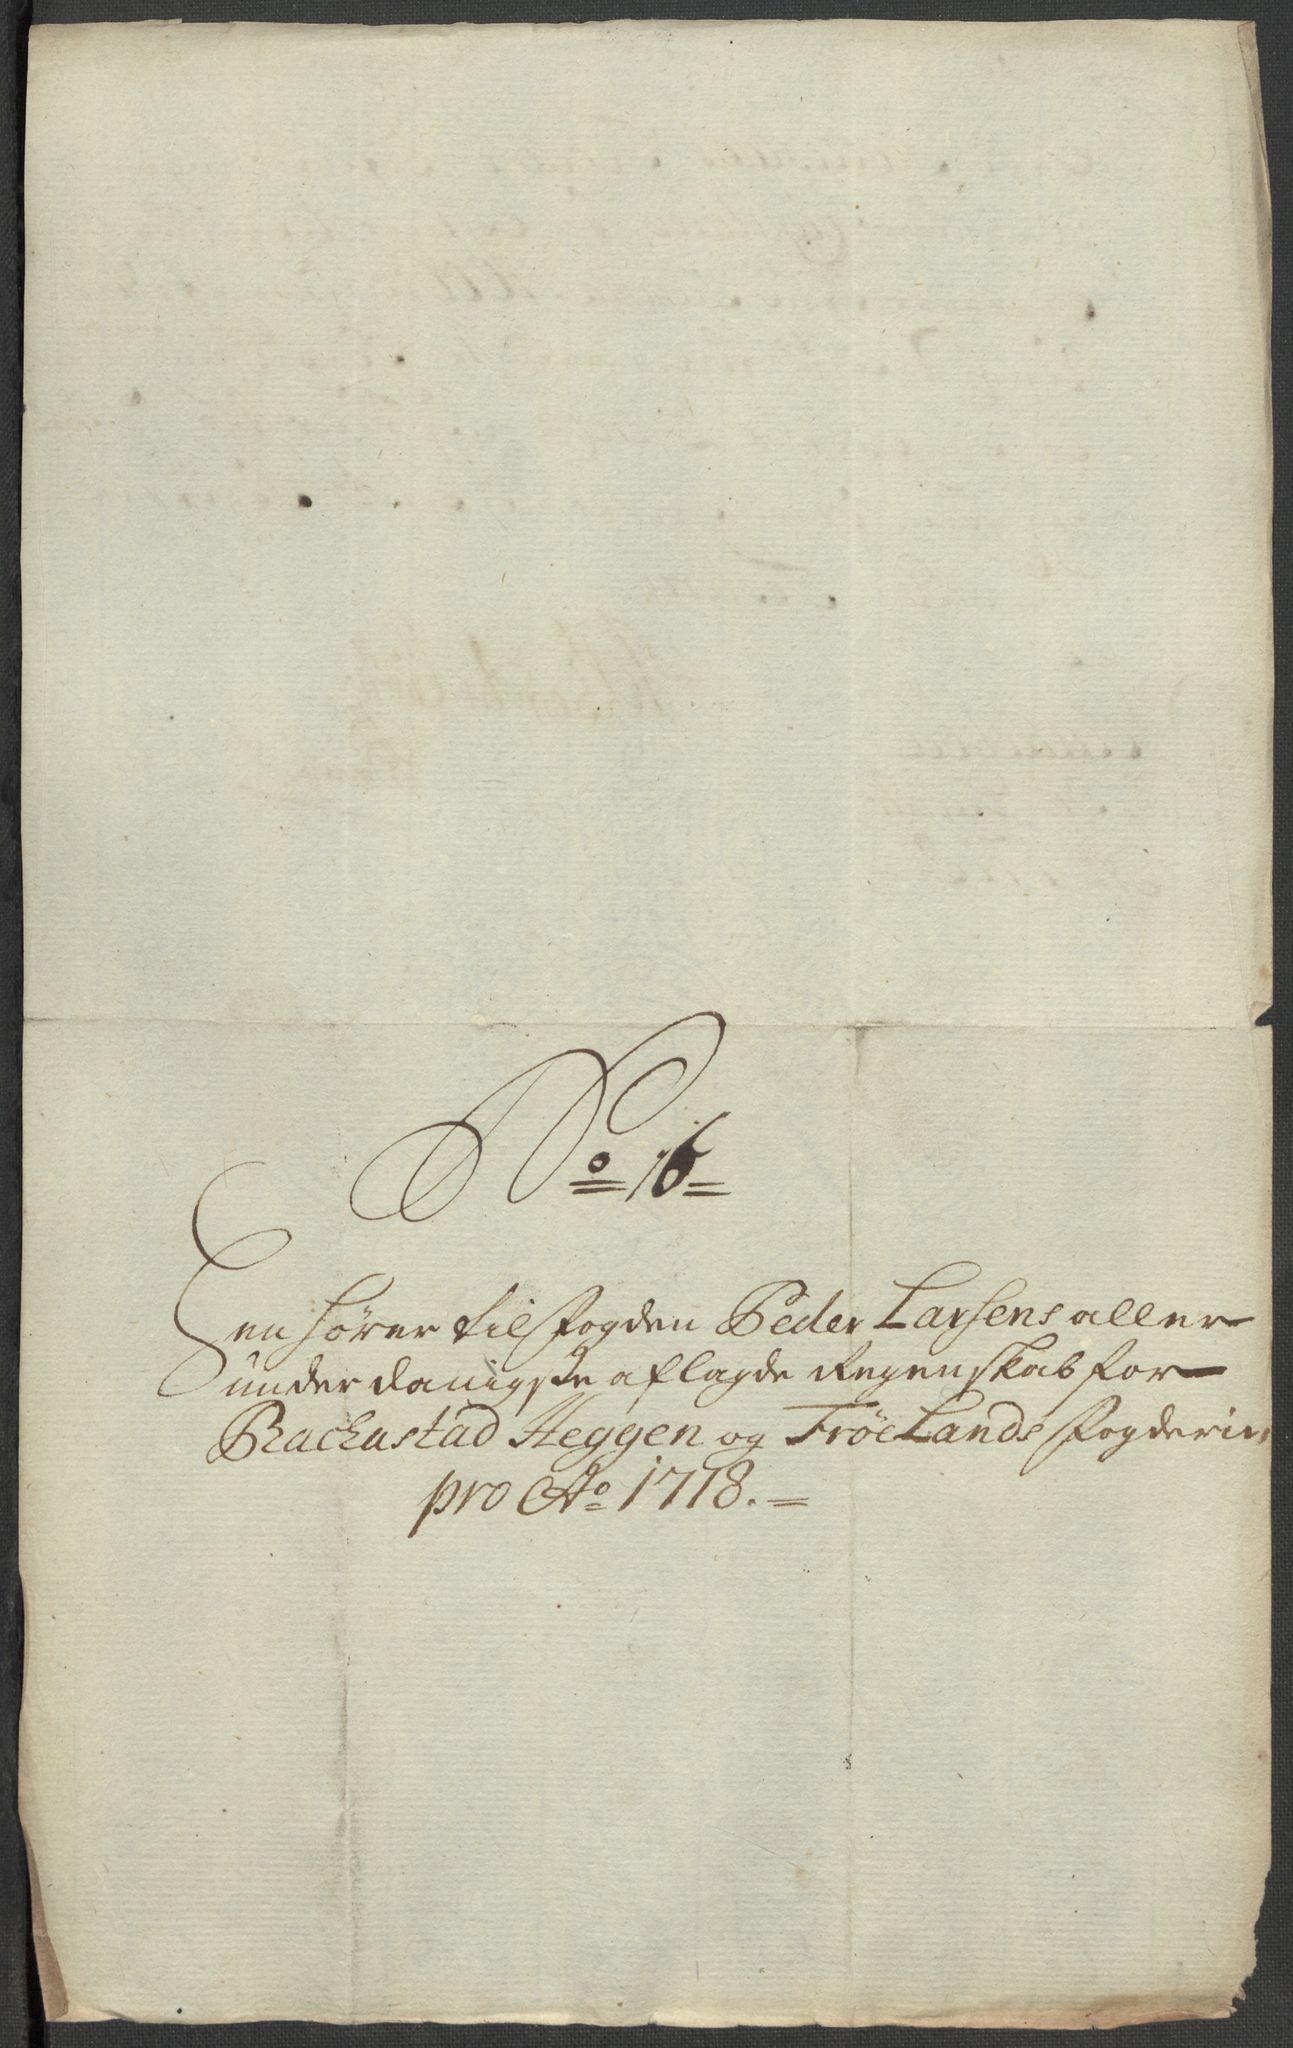 No 16
Hen hører til fogden Peder Larsens aller
underdanigste aflagde Regenskab for
Rachastad Heggen og Frøelands fogderier
pro Ao 1718.